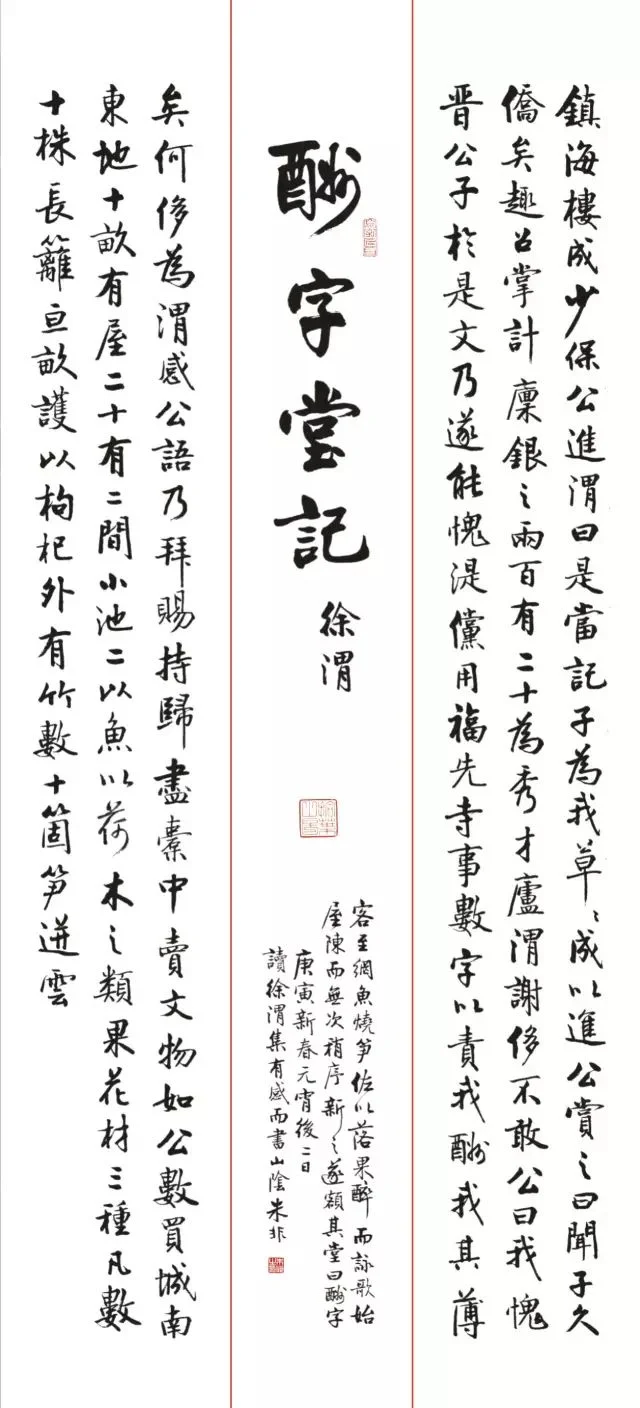 酬字堂記
徐渭
鎮海樓成少保公進渭曰是當記子為我草〻成以進公賞之曰聞子久
僑矣趣召掌計廩銀之兩百有二十為秀才廬渭謝侈不敢公曰我愧
晋公子於是文乃遂能愧湜儻用福先寺事數字以責我酬我其薄
矣何侈為渭感公語乃拜賜持歸盡橐中賣文物如公數買城南
東地十畝有屋二十有二間小池二以魚以荷木之類果花材三種凡數
十株長籬亘畝護以枸杞外有竹數十箇笋迸雲
客至網魚燒笋佐以落果醉而詠歌始
屋陳而無次稍序新之遂額其堂曰酬字
庚寅新春元宵後二日
讀徐渭集有感而書山陰朱非